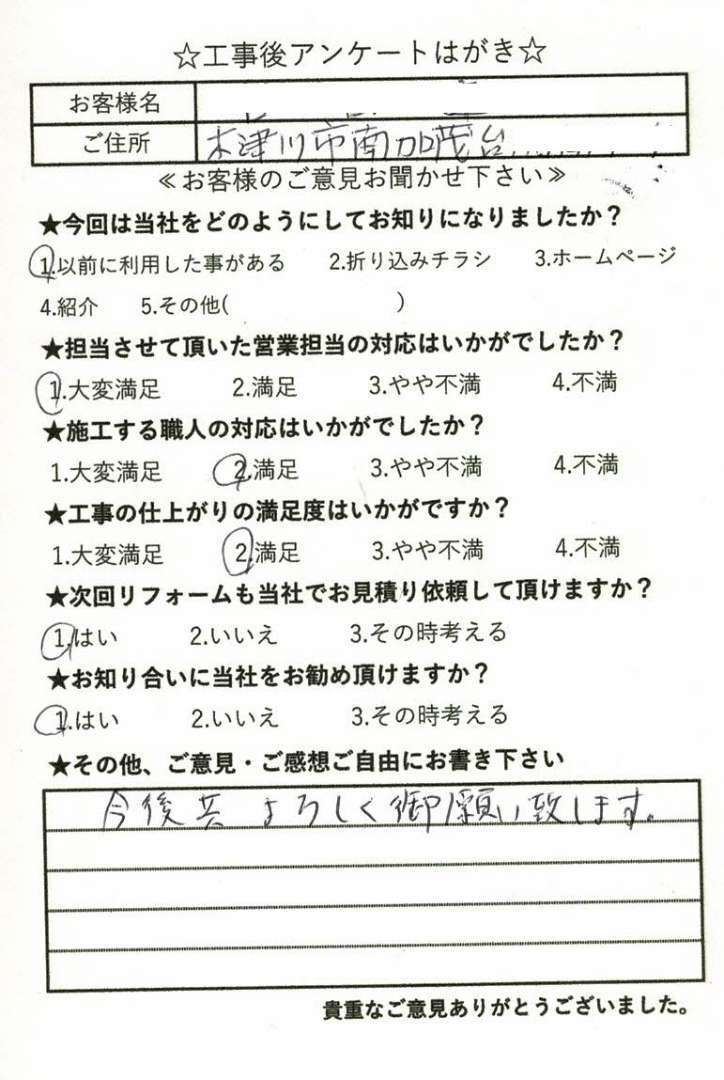 ☆工事後アンケートはがき☆
お客様名
ご住所 木津川市南加茂台
≪お客様のご意見お聞かせ下さい≫
★今回は当社をどのようにしてお知りになりましたか？
1.以前に利用した事がある 2.折り込みチラシ 3.ホームページ
4.紹介 5.その他( )
★担当させて頂いた営業担当の対応はいかがでしたか？
1.大変満足 2.満足 3.やや不満 4.不満
★施工する職人の対応はいかがでしたか？
1.大変満足 2.満足 3.やや不満 4.不満
★工事の仕上がりの満足度はいかがですか？
1.大変満足 2.満足 3.やや不満 4.不満
★次回リフォームも当社でお見積り依頼して頂けますか？
1.はい 2.いいえ 3.その時考える
★お知り合いに当社をお勧め頂けますか？
1.はい 2.いいえ 3.その時考える
★その他、ご意見・ご感想ご自由にお書き下さい
今後共よろしく御願い致します。
貴重なご意見ありがとうございました。